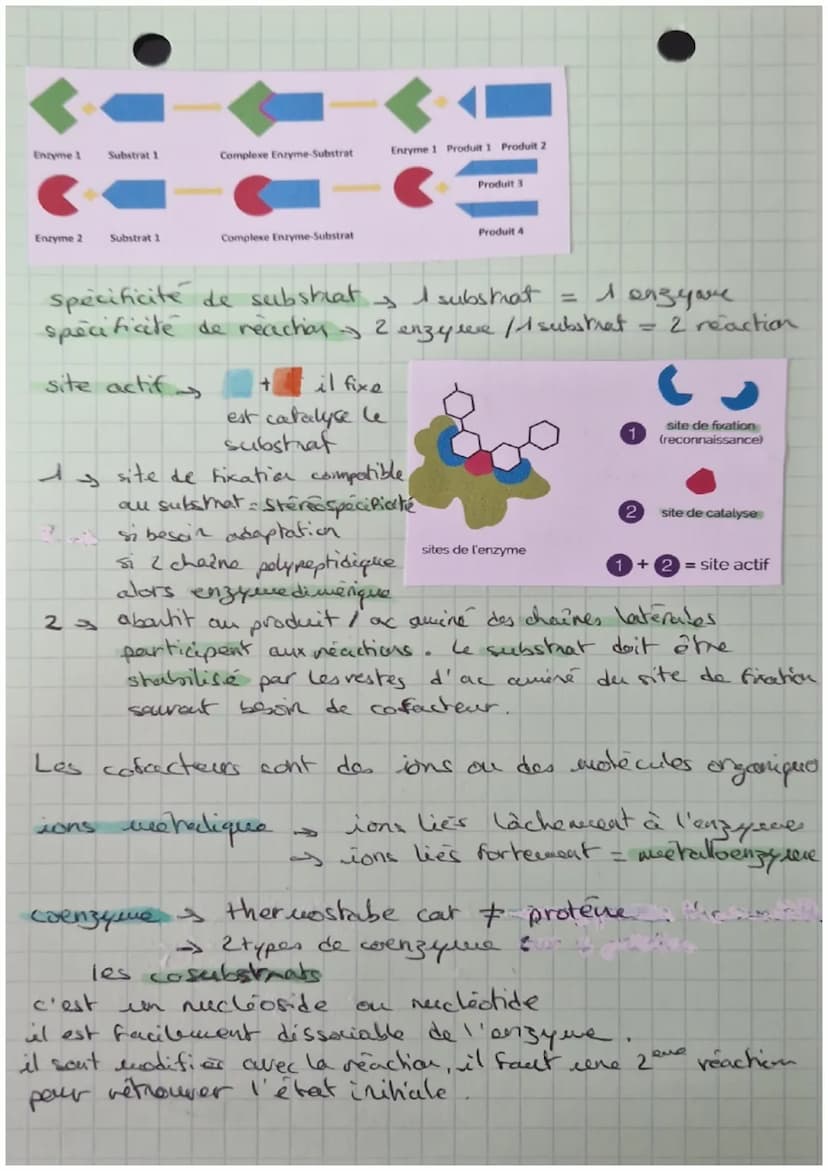 Enzyme 1 Substrat 1 Complexe Enzyme-Substrat Enzyme 1 Produit 1 Produit 2
Produit 3
Enzyme 2 Substrat 1 Complexe Enzyme-Substrat Produit 4
spécificité de substrat → 1 substrat = 1 enzyme
spécificité de réaction → 2 enzyme / 1 substrat = 2 réaction
site actif → + il fixe
est catalyse le
substrat
1 → site de fixation compatible
au substrat = stéréospécificité
si besoin adaptation
si 2 chaîne polypeptidique
alors enzyme dimérique
1 site de fixation
(reconnaissance)
2 site de catalyse
sites de l'enzyme
1 + 2 = site actif
2 → aboutit au produit / ac aminé des chaînes latérales
participent aux réactions. Le substrat doit être
stabilisé par les restes d'ac aminé du site de fixation
souvent besoin de cofacteur.
Les cofacteurs sont des ions ou des molécules organique
ions métalique → ions liés lâchement à l'enzyme
→ ions liés fortement = métalloenzyme
coenzyme → thermostabe car ≠ protéine
→ 2 types de coenzyme :
les cosubstrats
c'est un nucléoside ou nucléotide
il est facilement dissociable de l'enzyme.
il sont modifiés avec la réaction, il faut une 2ème réaction
pour rétrouver l'état initiale.